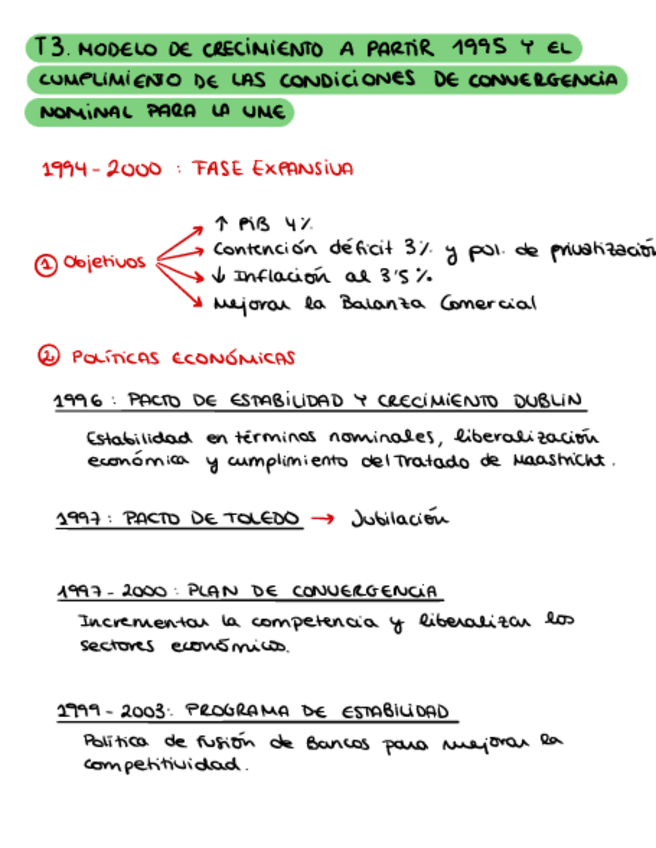 T3. MODELO DE CRECIMIENTO A PARTIR 1995 Y EL
CUMPLIMIENTO DE LAS CONDICIONES DE CONVERGENCIA
NOMINAL PARA LA UME
1994-2000 : FASE EXPANSIVA
① Objetivos
↑ PIB 4%
Contención déficit 3% y pol. de privatización
↓ Inflación al 3'5%.
Mejorar la Balanza Comercial
② POLÍTICAS ECONÓMICAS
1996 : PACTO DE ESTABILIDAD Y CRECIMIENTO DUBLIN
Estabilidad en términos nominales, liberalización
económica y cumplimiento del Tratado de Maastricht.
1997 : PACTO DE TOLEDO → Jubilación
1997-2000 : PLAN DE CONVERGENCIA
Incrementar la competencia y liberalizar los
sectores económicos.
1999-2003: PROGRAMA DE ESTABILIDAD
Política de fusión de Bancos para mejorar la
competitividad.